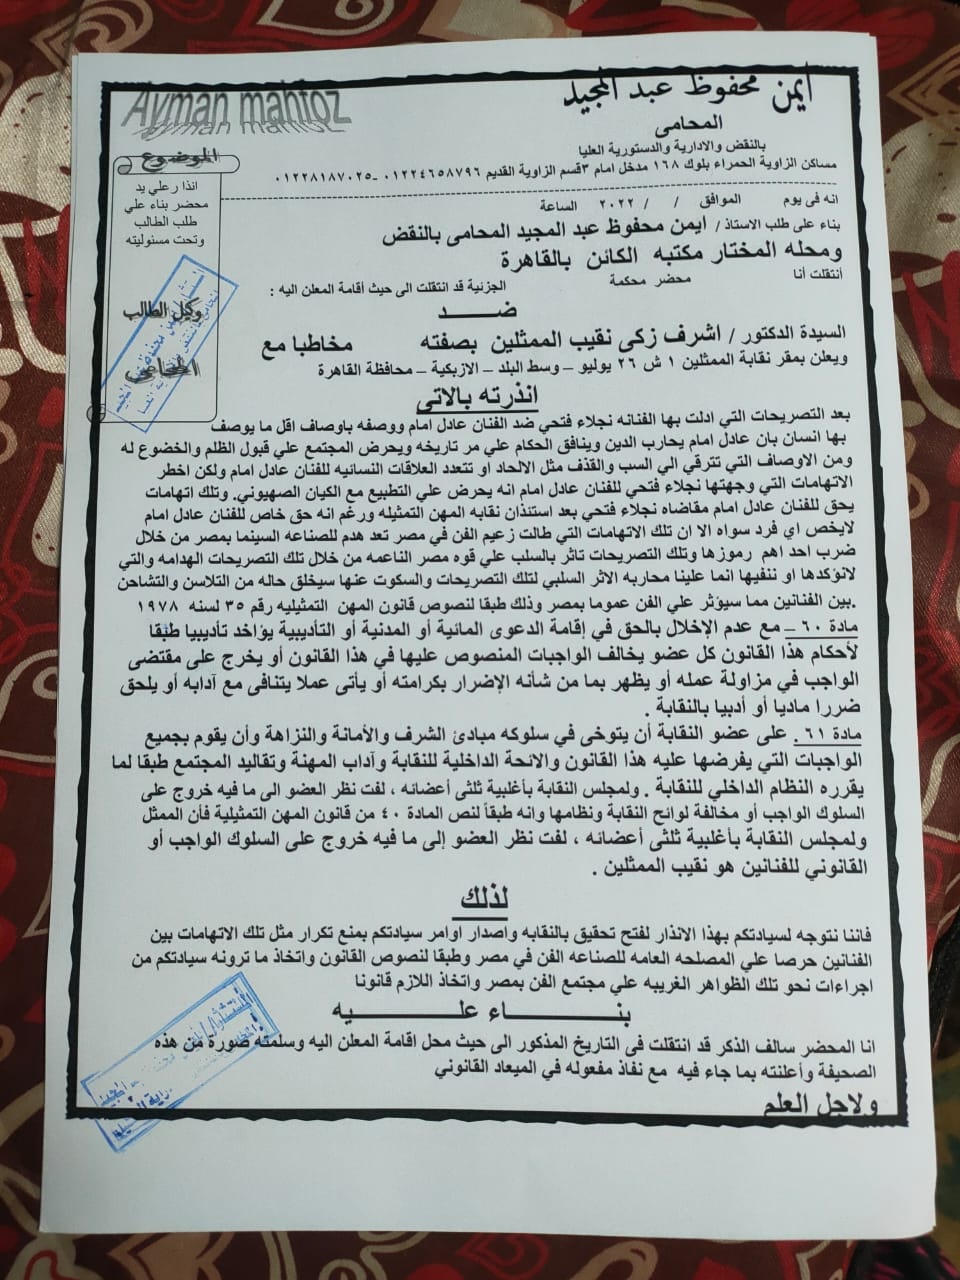 Ayman mahfoz
ايمن محفوظ عبد المجيد
المحامى
بالنقض والادارية والدستورية العليا
مساكن الزاوية الحمراء بلوك ١٦٨ مدخل امام ٣قسم الزاوية القديم ٠١٢٢٤٦٥٨٧٩٦ -٠١٢٢٨١٨٧٠٢٥
الموضوع
انذار علي يد
محضر بناء علي
طلب الطالب
وتحت مسئوليته
وكيل الطالب
المحامى
انه فى يوم الموافق / / ٢٠٢٢ الساعة
بناء على طلب الاستاذ / ايمن محفوظ عبد المجيد المحامى بالنقض
ومحله المختار مكتبه الكائن بالقاهرة
أنتقلت أنا محضر محكمة الجزئية قد انتقلت الى حيث أقامة المعلن اليه :
ضـــــد
السيدة الدكتور / اشرف زكى نقيب الممثلين بصفته مخاطبا مع
ويعلن بمقر نقابة الممثلين ١ ش ٢٦ يوليو – وسط البلد – الازبكية – محافظة القاهرة
انذرته بالاتى
بعد التصريحات التي ادلت بها الفنانه نجلاء فتحي ضد الفنان عادل امام ووصفه باوصاف اقل ما يوصف
بها انسان بان عادل امام يحارب الدين وينافق الحكام علي مر تاريخه ويحرض المجتمع علي قبول الظلم والخضوع له
ومن الاوصاف التي تترقي الي السب والقذف مثل الالحاد او تتعدد العلاقات النسائيه للفنان عادل امام ولكن اخطر
الاتهامات التي وجهتها نجلاء فتحي للفنان عادل امام انه يحرض علي التطبيع مع الكيان الصهيوني. وتلك اتهامات
يحق للفنان عادل امام مقاضاه نجلاء فتحي بعد استئذان نقابه المهن التمثيله ورغم انه حق خاص للفنان عادل امام
لايخص اي فرد سواه الا ان تلك الاتهامات التي طالت زعيم الفن في مصر تعد هدم للصناعه السينما بمصر من خلال
ضرب احد اهم رموزها وتلك التصريحات تاثر بالسلب علي قوه مصر الناعمه من خلال تلك التصريحات الهدامه والتي
لانؤكدها او ننفيها انما علينا محاربه الاثر السلبي لتلك التصريحات والسكوت عنها سيخلق حاله من التلاسن والتشاحن
.بين الفنانين مما سيؤثر علي الفن عموما بمصر وذلك طبقا لنصوص قانون المهن التمثيليه رقم ٣٥ لسنه ١٩٧٨
مادة ٦٠ – مع عدم الإخلال بالحق في إقامة الدعوى المائية أو المدنية أو التأديبية يؤاخد تأديبيا طبقا
لأحكام هذا القانون كل عضو يخالف الواجبات المنصوص عليها في هذا القانون أو يخرج على مقتضى
الواجب في مزاولة عمله أو يظهر بما من شأنه الإضرار بكرامته أو يأتى عملا يتنافى مع آدابه أو يلحق
ضررا ماديا أو أدبيا بالنقابة .
مادة ٦١ . على عضو النقابة أن يتوخى في سلوكه مبادئ الشرف والأمانة والنزاهة وأن يقوم بجميع
الواجبات التي يفرضها عليه هذا القانون والائحة الداخلية للنقابة وآداب المهنة وتقاليد المجتمع طبقا لما
يقرره النظام الداخلي للنقابة . ولمجلس النقابة بأغلبية ثلثى أعضائه ، لفت نظر العضو الى ما فيه خروج على
السلوك الواجب أو مخالفة لوائح النقابة ونظامها وانه طبقاً لنص المادة ٤٠ من قانون المهن التمثيلية فأن الممثل
ولمجلس النقابة بأغلبية ثلثى أعضائه ، لفت نظر العضو إلى ما فيه خروج على السلوك الواجب أو
القانوني للفنانين هو نقيب الممثلين .
لذلك
فاننا نتوجه لسيادتكم بهذا الانذار لفتح تحقيق بالنقابه واصدار اوامر سيادتكم بمنع تكرار مثل تلك الاتهامات بين
الفنانين حرصا علي المصلحه العامه للصناعه الفن في مصر وطبقا لنصوص القانون واتخاذ ما ترونه سيادتكم من
اجراءات نحو تلك الظواهر الغريبه علي مجتمع الفن بمصر واتخاذ اللازم قانونا
بنـــــــاء عليـــــــه
انا المحضر سالف الذكر قد انتقلت فى التاريخ المذكور الى حيث محل اقامة المعلن اليه وسلمته صورة من هذه
الصحيفة وأعلنته بما جاء فيه مع نفاذ مفعوله في الميعاد القانوني
ولاجل العلم